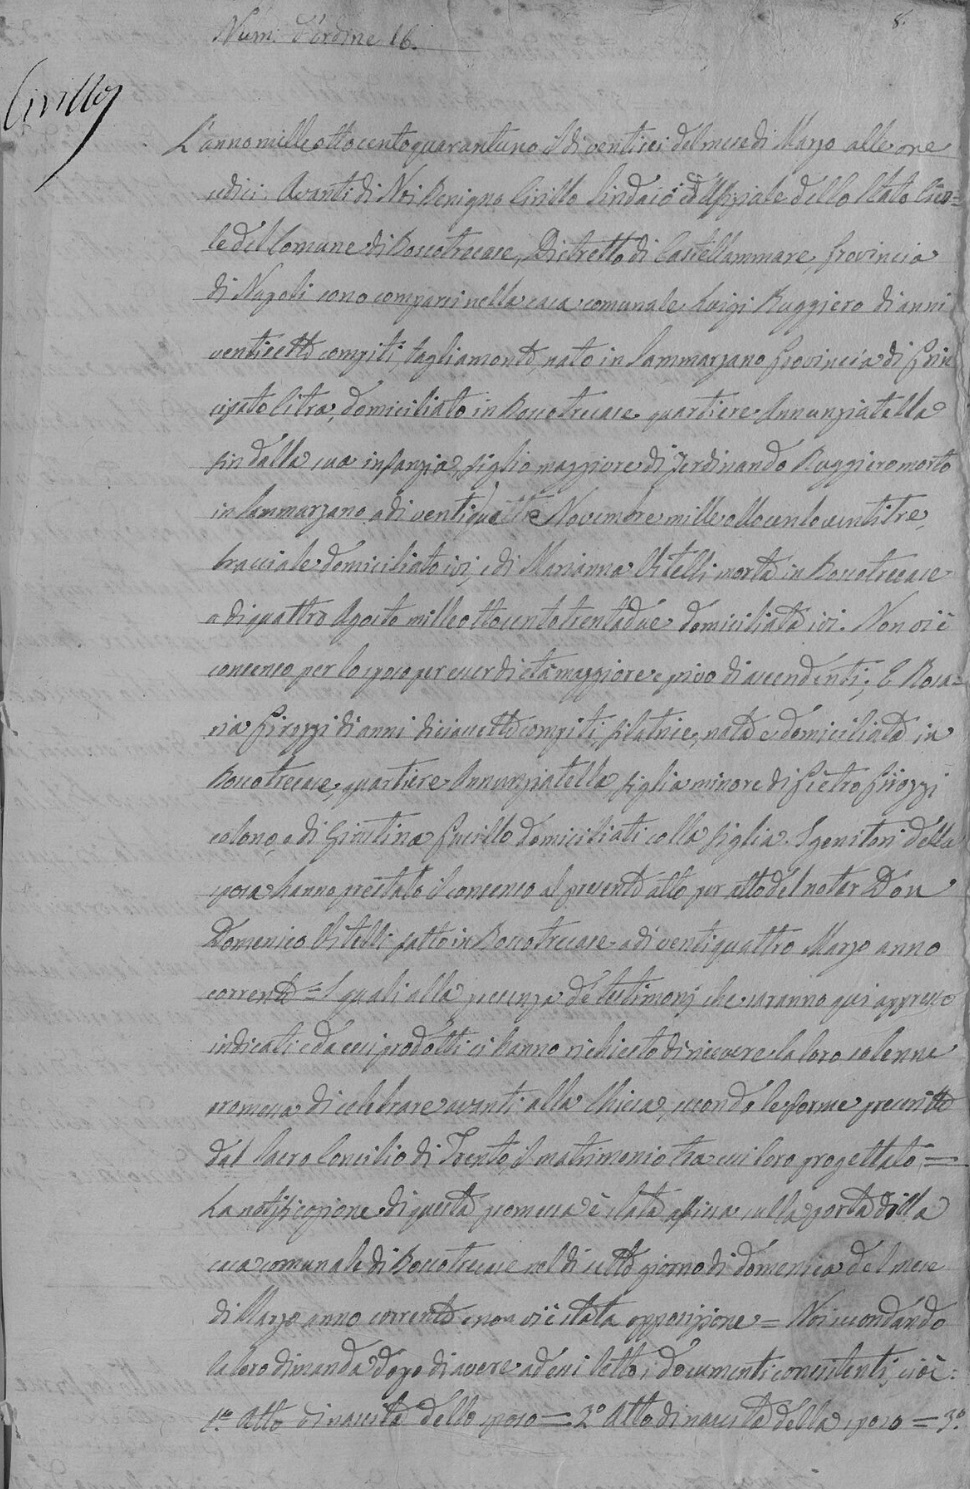 8.
Num: d'ordine 16.
Cirillo
L'anno mille ottocento quarantuno il dì ventisei del mese di Marzo alle ore
sedici. Avanti di Noi Benigno Cirillo Sindaco ed Uffiziale dello Stato Civi=
le del Comune di Boscotrecase, Distretto di Castellammare, Provincia
di Napoli sono comparsi nella casa comunale Luigi Ruggiero di anni
ventisette compiti, tagliamonte nato in Sammarzano Provincia di Prin
cipato Citra, domiciliato in Boscotrecase quartiere Annunziatella
fin dalla sua infanzia, figlio maggiore di Ferdinando Ruggiero morto
in Sammarzano a dì ventiquattro Novembre mille ottocento ventitre,
bracciale domiciliato ivi, e di Marianna Vitelli morta in Boscotrecase
a dì quattro Agosto mille ottocento trentadue domiciliata ivi. Non vi è
consenso per lo sposo per esser di età maggiore e privo di ascendenti; E Rosa=
ria Pirozzi di anni diciasette compiti, filatrice, nata e domiciliata in
Boscotrecase, quartiere Annunziatella figlia minore di Pietro Pirozzi
colono, e di Giustina domiciliati colla figlia. I genitori della
sposa hanno prestato il consenso al presente atto per atto del notar Don
Domenico Vitelli fatto in Boscotrecase a dì ventiquattro Marzo anno
corrente = I quali alla presenza de' testimonj che saranno qui appresso
indicati e da essi prodotti ci hanno richiesto di ricevere la loro solenne
promessa di celebrare avanti alla Chiesa, secondo le forme prescritte
dal Sacro Concilio di Trento, il matrimonio tra essi loro progettato. =
La notificazione di questa promessa è stata affissa sulla porta della
casa comunale di Boscotrecase nel dì sette giorno di domenica del mese
di Marzo anno corrente e non vi è stata opposizione = Noi secondando
la loro dimanda dopo di avere ad essi letto i documenti consistenti, cioè:
1.º Atto di nascita dello sposo = 2.º Atto di nascita della sposa = 3.º